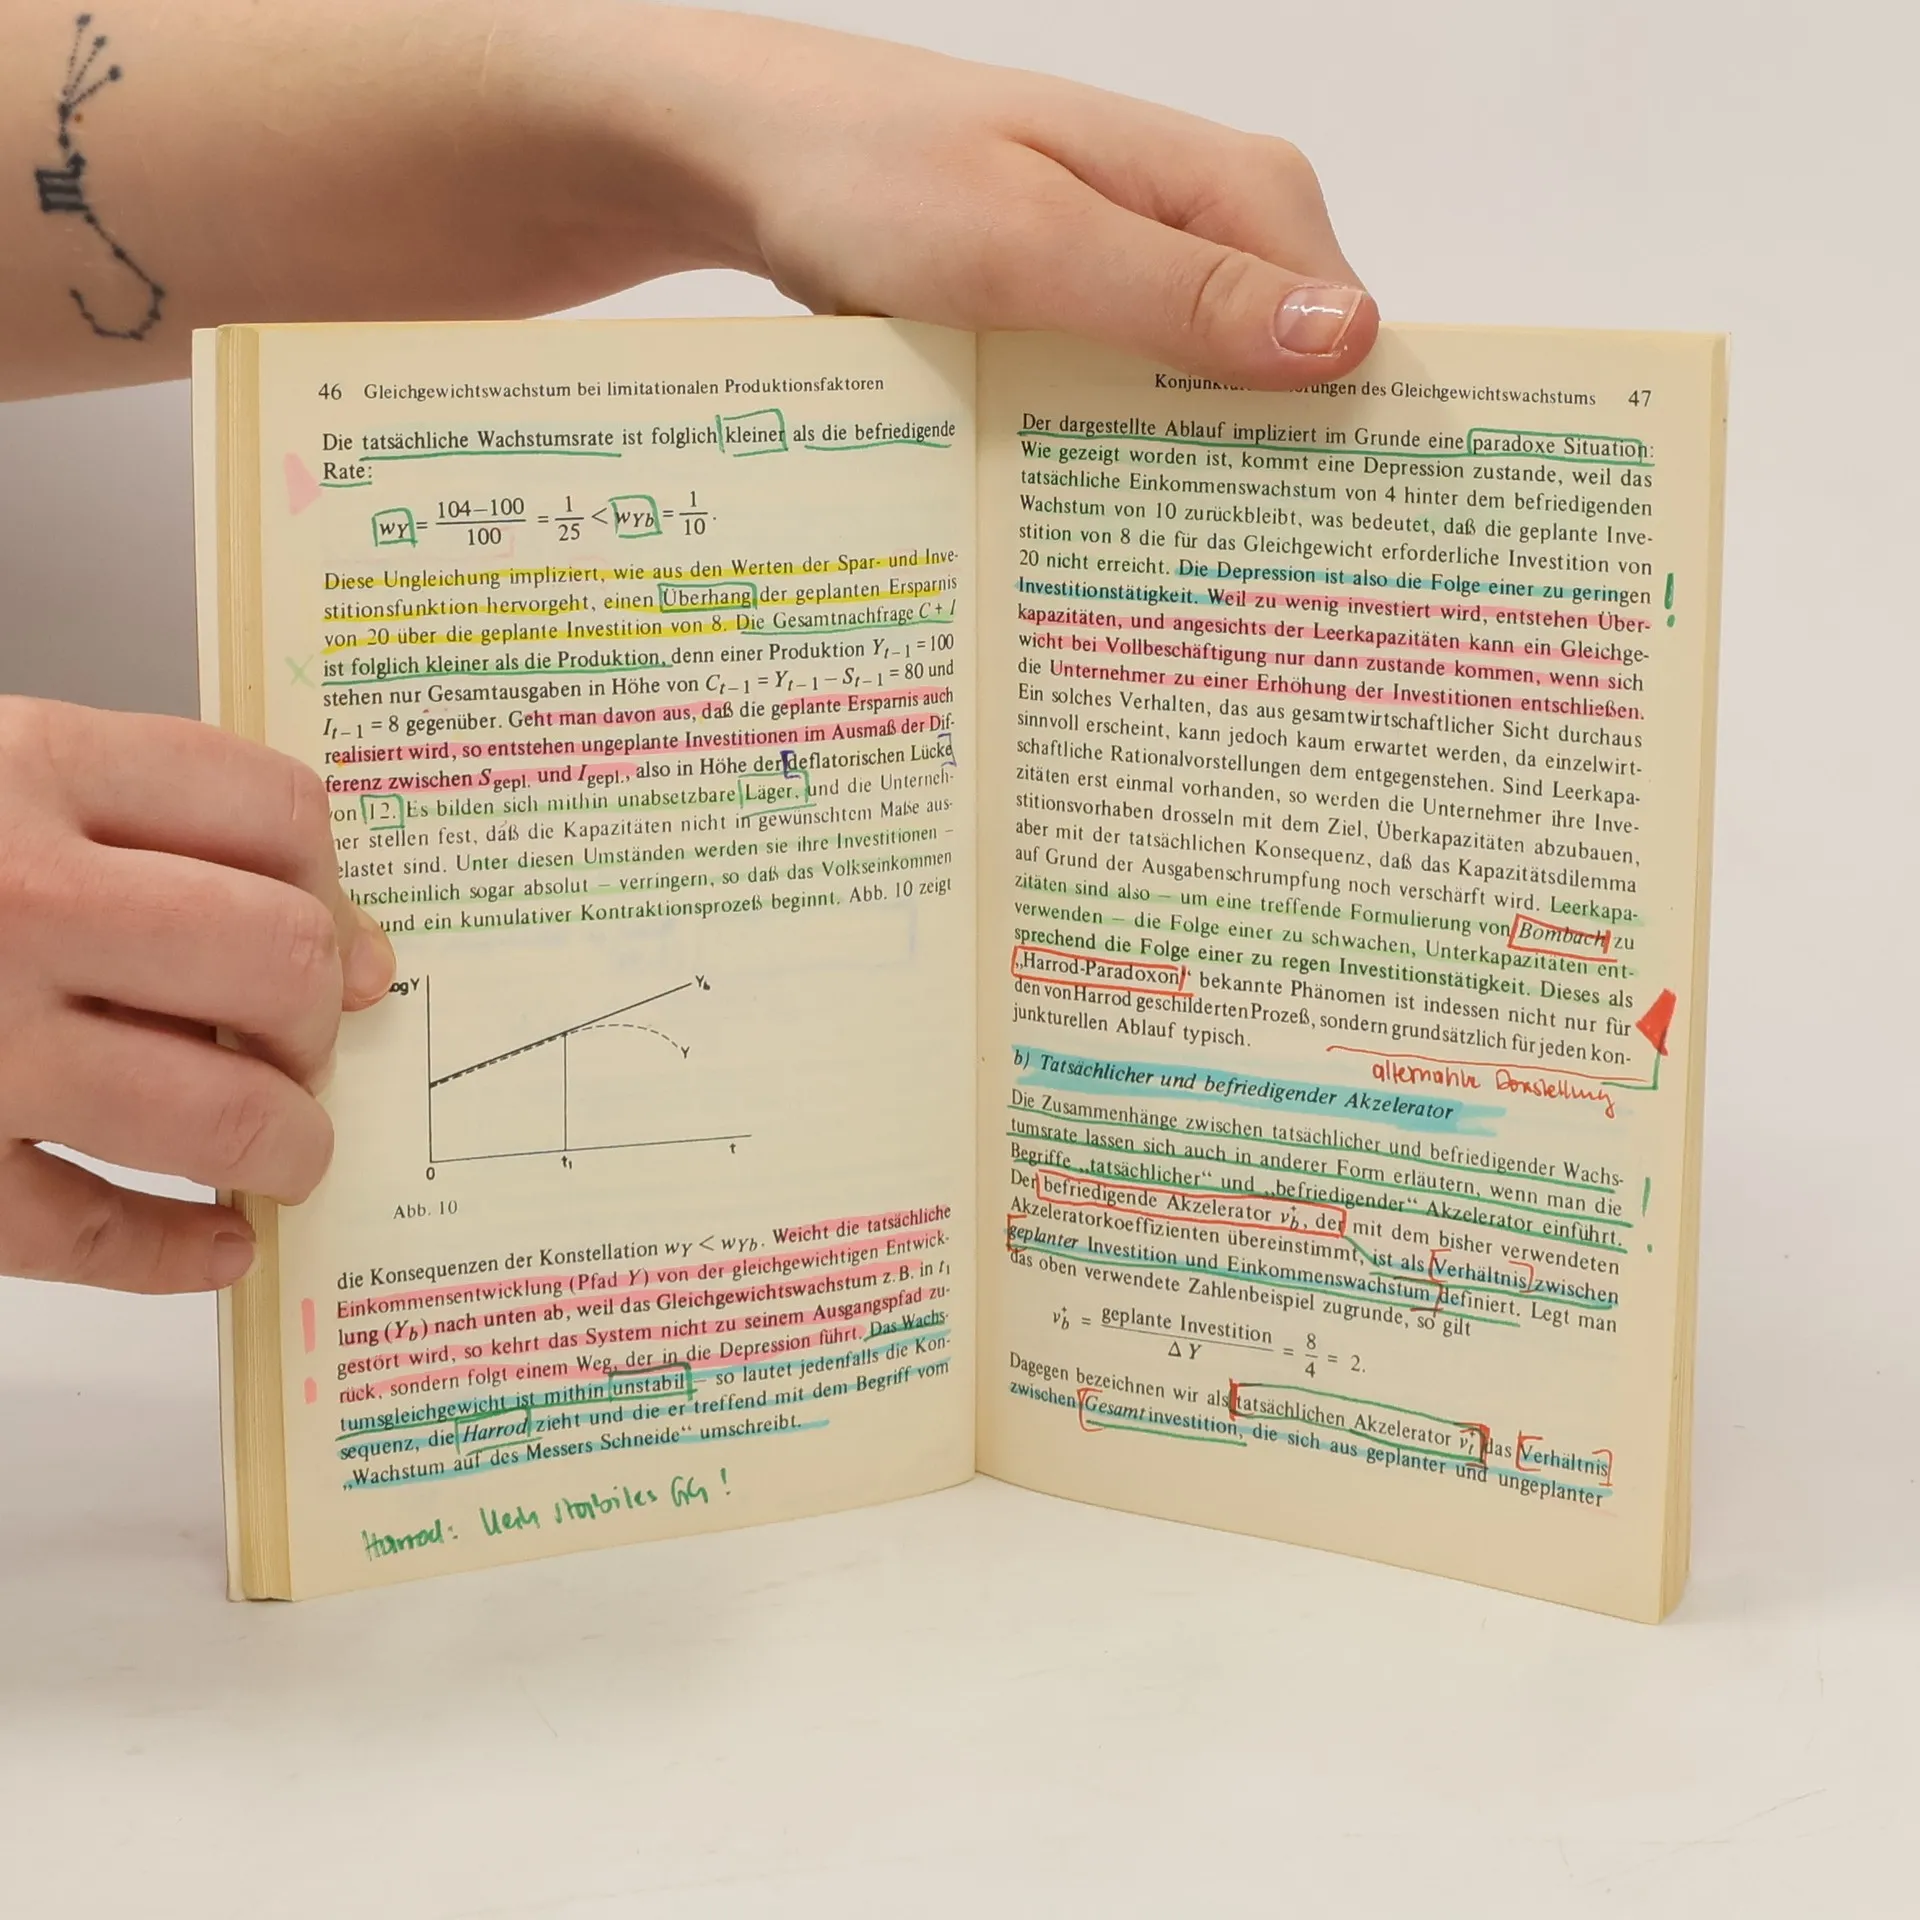 46 Gleichgewichtswachstum bei limitationalen Produktionsfaktoren
Die tatsächliche Wachstumsrate ist folglich kleiner als die befriedigende
Rate:
wY = 104–100 / 100 = 1 / 25 < wYb = 1 / 10 .
Diese Ungleichung impliziert, wie aus den Werten der Spar- und Inve-
stitionsfunktion hervorgeht, einen Überhang der geplanten Ersparnis
von 20 über die geplante Investition von 8. Die Gesamtnachfrage C + I
ist folglich kleiner als die Produktion, denn einer Produktion Yt–1 = 100
stehen nur Gesamtausgaben in Höhe von Ct–1 = Yt–1 – St–1 = 80 und
It–1 = 8 gegenüber. Geht man davon aus, daß die geplante Ersparnis auch
realisiert wird, so entstehen ungeplante Investitionen im Ausmaß der Dif-
ferenz zwischen Sgepl. und Igepl., also in Höhe der deflatorischen Lücke
von 12. Es bilden sich mithin unabsetzbare Läger, und die Unterneh-
her stellen fest, daß die Kapazitäten nicht in gewünschtem Maße aus-
elastet sind. Unter diesen Umständen werden sie ihre Investitionen –
hrscheinlich sogar absolut – verringern, so daß das Volkseinkommen
und ein kumulativer Kontraktionsprozeß beginnt. Abb. 10 zeigt
ogY
Yb
Y
0
t1
t
Abb. 10
die Konsequenzen der Konstellation wY < wYb. Weicht die tatsächliche
Einkommensentwicklung (Pfad Y) von der gleichgewichtigen Entwick-
lung (Yb) nach unten ab, weil das Gleichgewichtswachstum z. B. in t1
gestört wird, so kehrt das System nicht zu seinem Ausgangspfad zu-
rück, sondern folgt einem Weg, der in die Depression führt. Das Wachs-
tumsgleichgewicht ist mithin unstabil – so lautet jedenfalls die Kon-
sequenz, die Harrod zieht und die er treffend mit dem Begriff vom
„Wachstum auf des Messers Schneide“ umschreibt.
Harrod: stabiles GG!
des Gleichgewichtswachstums 47
Der dargestellte Ablauf impliziert im Grunde eine paradoxe Situation:
Wie gezeigt worden ist, kommt eine Depression zustande, weil das
tatsächliche Einkommenswachstum von 4 hinter dem befriedigenden
Wachstum von 10 zurückbleibt, was bedeutet, daß die geplante Inve-
stition von 8 die für das Gleichgewicht erforderliche Investition von
20 nicht erreicht. Die Depression ist also die Folge einer zu geringen
Investitionstätigkeit. Weil zu wenig investiert wird, entstehen Über-
kapazitäten, und angesichts der Leerkapazitäten kann ein Gleichge-
wicht bei Vollbeschäftigung nur dann zustande kommen, wenn sich
die Unternehmer zu einer Erhöhung der Investitionen entschließen.
Ein solches Verhalten, das aus gesamtwirtschaftlicher Sicht durchaus
sinnvoll erscheint, kann jedoch kaum erwartet werden, da einzelwirt-
schaftliche Rationalvorstellungen dem entgegenstehen. Sind Leerkapa-
zitäten erst einmal vorhanden, so werden die Unternehmer ihre Inve-
stitionsvorhaben drosseln mit dem Ziel, Überkapazitäten abzubauen,
aber mit der tatsächlichen Konsequenz, daß das Kapazitätsdilemma
auf Grund der Ausgabenschrumpfung noch verschärft wird. Leerkapa-
zitäten sind also – um eine treffende Formulierung von Bombach zu
verwenden – die Folge einer zu schwachen, Unterkapazitäten ent-
sprechend die Folge einer zu regen Investitionstätigkeit. Dieses als
„Harrod-Paradoxon“ bekannte Phänomen ist indessen nicht nur für
den von Harrod geschilderten Prozeß, sondern grundsätzlich für jeden kon-
junkturellen Ablauf typisch.
alternative Darstellung
b) Tatsächlicher und befriedigender Akzelerator
Die Zusammenhänge zwischen tatsächlicher und befriedigender Wachs-
tumsrate lassen sich auch in anderer Form erläutern, wenn man die
Begriffe „tatsächlicher“ und „befriedigender“ Akzelerator einführt.
Der befriedigende Akzelerator v+b, der mit dem bisher verwendeten
Akzeleratorkoeffizienten übereinstimmt, ist als Verhältnis zwischen
geplanter Investition und Einkommenswachstum definiert. Legt man
das oben verwendete Zahlenbeispiel zugrunde, so gilt
v+b = geplante Investition / Δ Y = 8 / 4 = 2.
Dagegen bezeichnen wir als tatsächlichen Akzelerator v+t das Verhältnis
zwischen Gesamtinvestition, die sich aus geplanter und ungeplanter